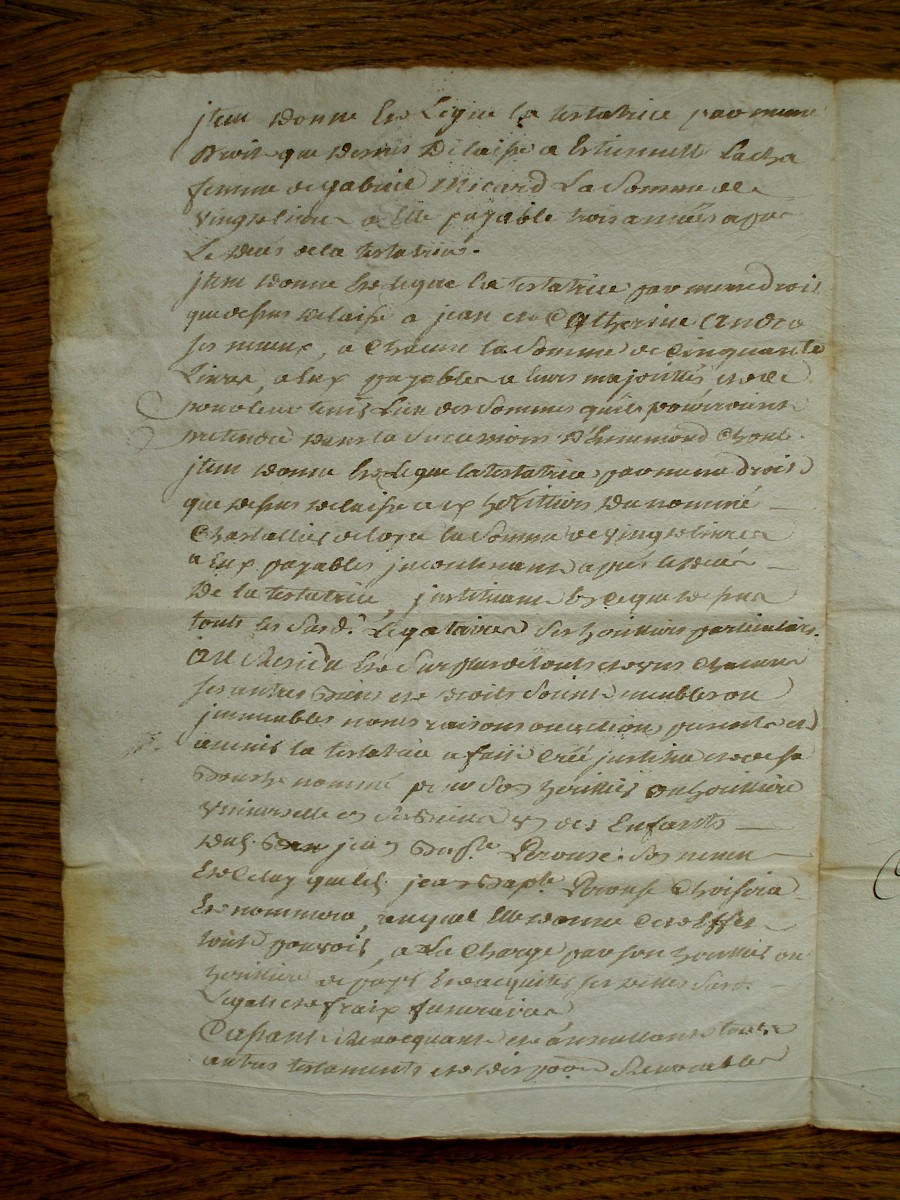 jtem donne et Legue la testatrice par meme
droit que dessus delaisse a Estiennette Lacha
femme de gabriel Micard La Somme de
vingt livres a Elle payable trois années apres
Le deces de la testatrice.
jtem donne et legue la testatrice par meme droit
que dessus delaisse a jean et Catherine Andro
ses neveux, a chacun la Somme de Cinquante
Livres, a Eux payables a leurs majorités et de
pour leur tenir Lieu des Sommes qu'ils pourroient
pretendre dans la Succession d'Ennemond
jtem donne et Legue la testatrice par meme droit
que dessus delaisse aux heritiers du nommé
la Somme de vingt livres
a Eux payables jncontinant après le deces
De la testatrice, jnstituant Et que dessus
touts les Susd. Legataires Ses heritiers particuliers.
Au Residu Et Surplus de touts et uns chacuns
ses autres Biens et droits Soient meubles ou
jmmeubles noms raisons ou actions presents et
avenir la testatrice a fait créé jnstitué et de sa
Bouche nommé pour Son heritier ou heritiere
universelle un des Enfants
dud. jean Bap.te Perouse Son neveu
Et Celuy que led. jean Bap.te Perouse Choisira
Et nommera, auquel Elle donne Cet Effet
tout pouvoir, a La Charge par son heritier ou
heritiere de payer Et acquiter ses dettes Susd.
Legats et fraix funeraires
Cassant Revocquant et annullant touts
autres testaments et Revocables